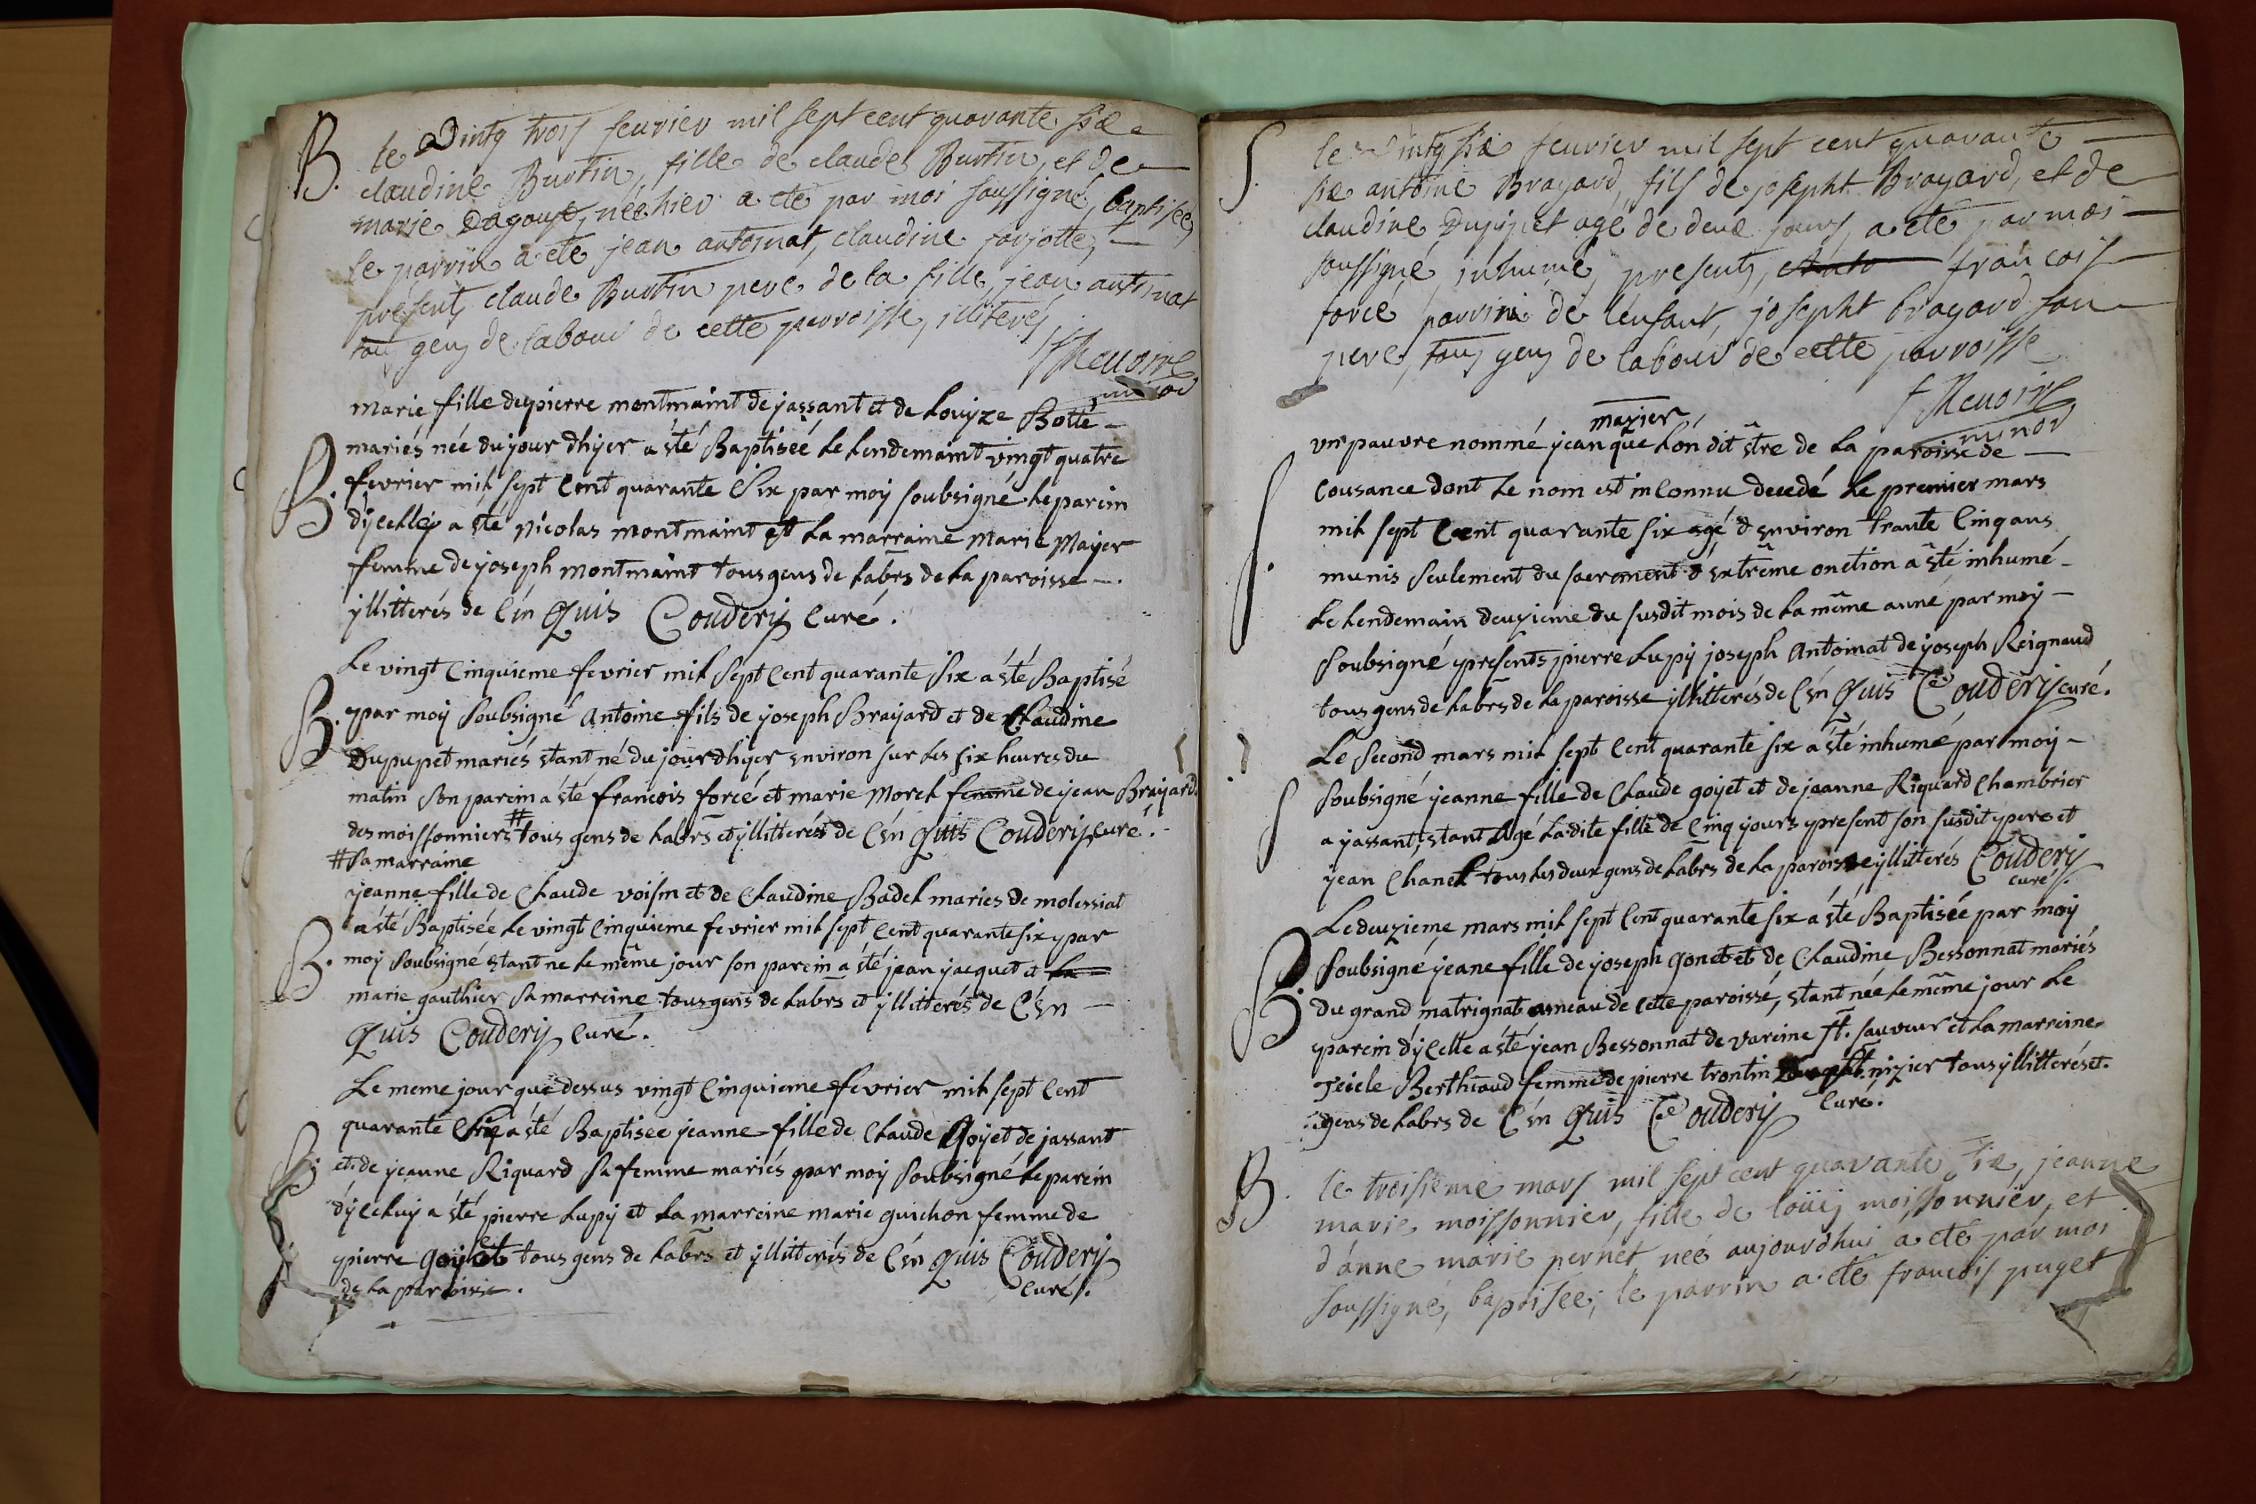 B. le Vintg trois feurier mil sept cent quarante six
claudine Burtin, fille de claude Burtin, et de
marie Dagouf, née hier a eté par moi soussigné, baptisée,
le parrin a eté jean antoinat, claudine farjotte,
presents claude Burtin pere de la fille, jean antoinat
tous gens de labour de cette parroisse, illiterés
f Reuoire
minor
marie fille de pierre montmaint de jassant et de Louyze Botté
mariés née du jour dhyer a été Baptiseé Le Lendemaint vingt quatre
B. fevrier mil sept Cent quarante Six par moy soubsigné Le parein
dÿcelley a été Nicolas montmaint et La marraine Marie Mayer
femme de joseph montmaint tous gens de Labrs de La paroisse
yllitterés de Cén Quis Coudery Curé.
Le vingt Cinquieme fevrier mil Sept Cent quarante Six a été Baptisé
B. par moy Soubsigné Antoine fils de joseph Brayard et de Claudine
Dupupet mariés etant né du jour dhyer environ sur Les six heures du
matin Son parein a été francois forcé et marie Morel femme de jean Brayard
des moissonniers # tous gens de Labrs et yllitterés de Cén Quis Coudery curé.
# Sa marraine
jeanne fille de Claude voisin et de Claudine Badel maries de molessiat
a été Baptisée Le vingt Cinquieme fevrier mil sept Cent quarante six par
B. moy Soubsigné etant ne Le même jour son parein a été jean jacquet et La
marie gauthier Sa marreine tous gens de Labrs et yllitterés de Cén
Quis Coudery Curé.
Le meme jour que dessus vingt Cinquieme fevrier mil sept Cent
quarante Six a été Baptisée jeanne fille de Claude Goyet de jassant
B. et de jeanne Riquard Sa femme mariés par moy Soubsigné Le parein
dÿceluy a été pierre Lupy et La marreine marie guichon femme de
pierre Goyet tous gens de Labrs et yllitterés de Cén Quis Coudery
de La paroisse. Curé.
S. le Vintg six feurier mil sept cent quarante
six antoine Brayard, fils de josepht Brayard, et de
claudine Dupupet agé de deux jours, a eté par moi
soussigné inhumé, presents, Anto françois
force parrin de lenfant, josepht brayard son
pere, tous gens de labour de cette parroisse
f Reuoire
minor
mazier
vn pauvre nommé jean que Lón dit être de La paroisse de
Cousance dont Le nom est inConnu decedé Le premier mars
mil sept Cent quarante six agé d environ trante Cinq ans
S. munis seulement du sacrement d éxtrême onction a été inhumé
Le Lendemain deuzieme du susdit mois de La même anné par moy
Soubsigné presents pierre Lupy joseph Antoinat de joseph Reignaud
tous gens de Labrs de La paroisse yllitterés de Cén Quis Coudery curé.
Le Second mars mil sept Cent quarante six a été inhumé par moy
S Soubsigné jeanne fille de Claude goyet et de jeanne Riquard Chambrier
a jassant, etant Agé Ladite fille de Cinq jours present son susdit pere et
jean Chanel tous Les deux gens de Labrs de La paroisse yllitterés Coudery
curé.
Le deuzieme mars mil sept Cent quarante six a été Baptisée par moy
B. Soubsigné jeane fille de joseph Gonet et de Claudine Bessonnat mariés
du grand matrignat ameau de Cette paroisse, etant née Le même jour Le
parein dÿcelle a été jean Bessonnat de vareine St. sauveur et La marreine
Teicle Berthiaud femme de pierre trontin nizier tous yllitterés et
gens de Labrs de Cén Quis Coudery Curé.
B. le troisieme mars mil sept cent quarante six, jeanne
marie moissonnier, fille de loüis moissonnier, et
dánne marie pernet, neé aujourdhui a eté par moi
soussigné, baptisée; le parrin a eté francois puget